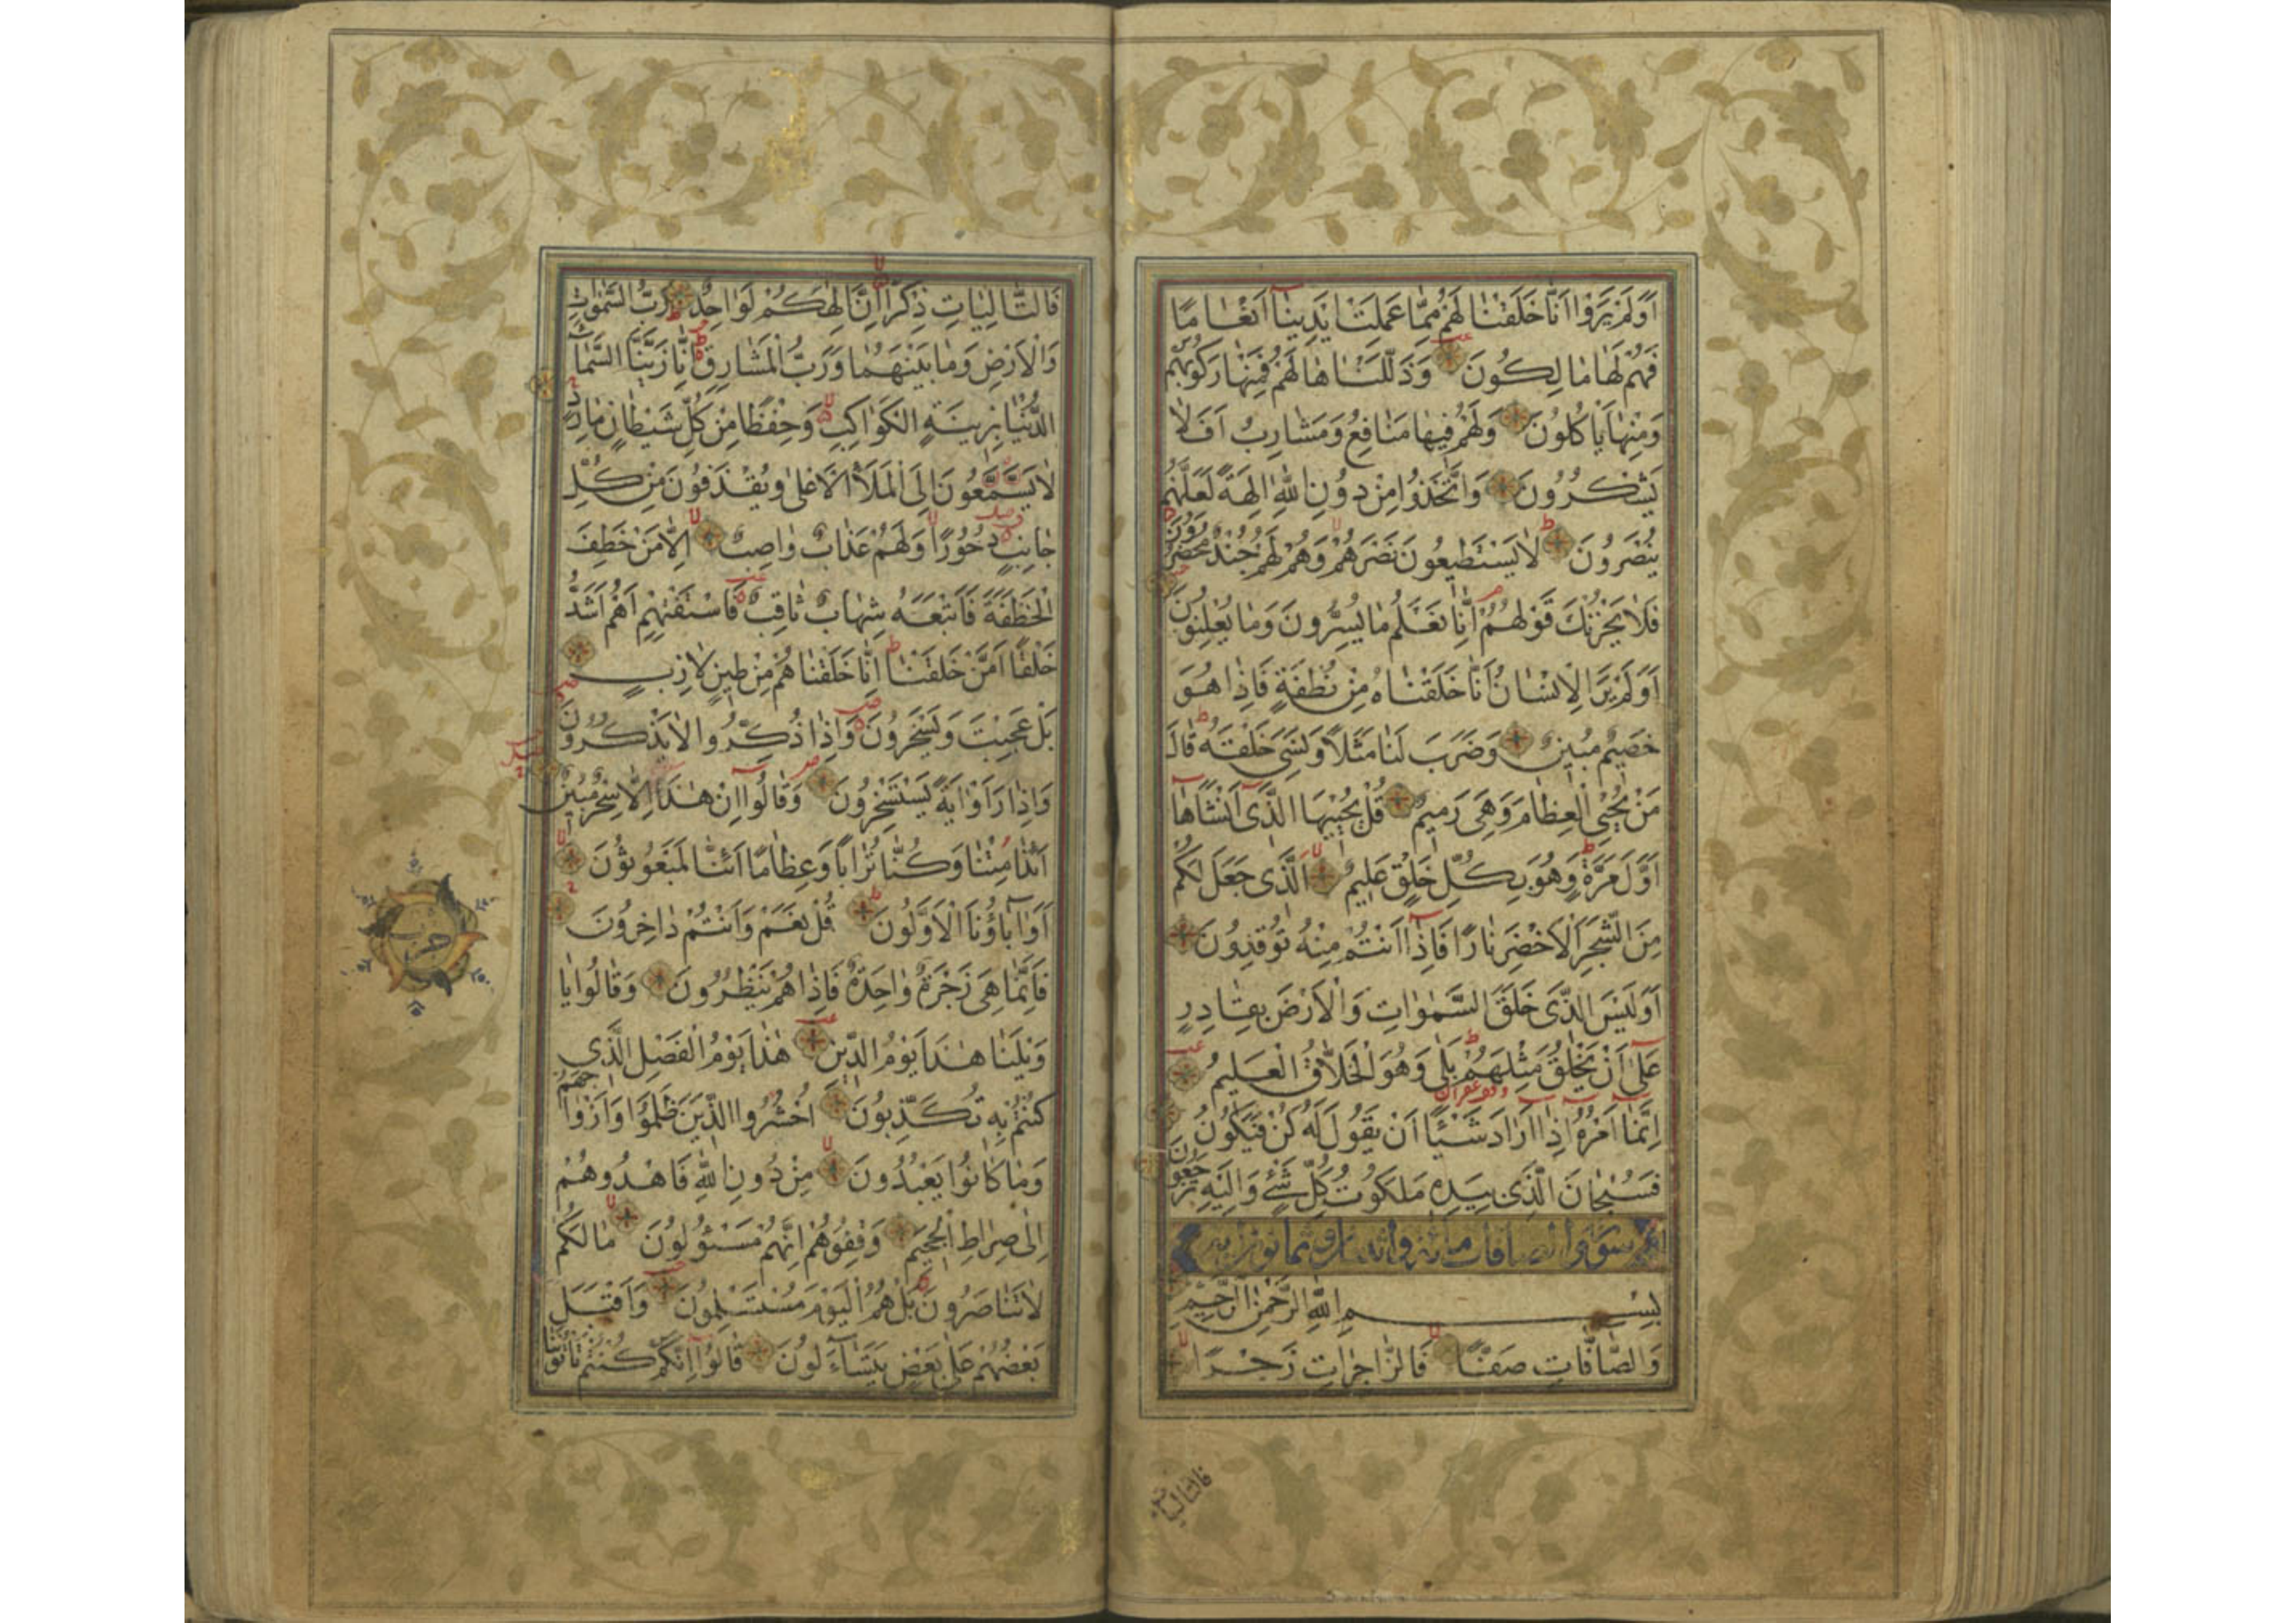 اَوَلَمْ يَرَوْا اَنَّا خَلَقْنَا لَهُمْ مِمَّا عَمِلَتْ اَيْدِينَا اَنْعَامًا
فَهُمْ لَهَا مَالِكُونَ وَذَلَّلْنَاهَا لَهُمْ فَمِنْهَا رَكُوبُهُمْ
وَمِنْهَا يَأْكُلُونَ وَلَهُمْ فِيهَا مَنَافِعُ وَمَشَارِبُ اَفَلَا
يَشْكُرُونَ وَاتَّخَذُوا مِنْ دُونِ اللّٰهِ اٰلِهَةً لَعَلَّهُمْ
يُنْصَرُونَ لَا يَسْتَطِيعُونَ نَصْرَهُمْ وَهُمْ لَهُمْ جُنْدٌ مُحْضَرُونَ
فَلَا يَحْزُنْكَ قَوْلُهُمْ اِنَّا نَعْلَمُ مَا يُسِرُّونَ وَمَا يُعْلِنُونَ
اَوَلَمْ يَرَ الْاِنْسَانُ اَنَّا خَلَقْنَاهُ مِنْ نُطْفَةٍ فَاِذَا هُوَ
خَصِيمٌ مُبِينٌ وَضَرَبَ لَنَا مَثَلًا وَنَسِيَ خَلْقَهُ قَالَ
مَنْ يُحْيِي الْعِظَامَ وَهِيَ رَمِيمٌ قُلْ يُحْيِيهَا الَّذِي اَنْشَاَهَا
اَوَّلَ مَرَّةٍ وَهُوَ بِكُلِّ خَلْقٍ عَلِيمٌ اَلَّذِي جَعَلَ لَكُمْ
مِنَ الشَّجَرِ الْاَخْضَرِ نَارًا فَاِذَا اَنْتُمْ مِنْهُ تُوقِدُونَ
اَوَلَيْسَ الَّذِي خَلَقَ السَّمٰوَاتِ وَالْاَرْضَ بِقَادِرٍ
عَلٰى اَنْ يَخْلُقَ مِثْلَهُمْ بَلٰى وَهُوَ الْخَلَّاقُ الْعَلِيمُ
اِنَّمَا اَمْرُهُ اِذَا اَرَادَ شَيْئًا اَنْ يَقُولَ لَهُ كُنْ فَيَكُونُ
فَسُبْحَانَ الَّذِي بِيَدِهِ مَلَكُوتُ كُلِّ شَيْءٍ وَاِلَيْهِ تُرْجَعُونَ
سورة والصافات مائة واثنان وثمانون آية
بِسْمِ اللّٰهِ الرَّحْمٰنِ الرَّحِيمِ
وَالصَّافَّاتِ صَفًّا فَالزَّاجِرَاتِ زَجْرًا
فالتاليات
فَالتَّالِيَاتِ ذِكْرًا اِنَّ اِلٰهَكُمْ لَوَاحِدٌ رَبُّ السَّمٰوَاتِ
وَالْاَرْضِ وَمَا بَيْنَهُمَا وَرَبُّ الْمَشَارِقِ اِنَّا زَيَّنَّا السَّمَاءَ
الدُّنْيَا بِزِينَةٍ الْكَوَاكِبِ وَحِفْظًا مِنْ كُلِّ شَيْطَانٍ مَارِدٍ
لَا يَسَّمَّعُونَ اِلَى الْمَلَاِ الْاَعْلٰى وَيُقْذَفُونَ مِنْ كُلِّ
جَانِبٍ دُحُورًا وَلَهُمْ عَذَابٌ وَاصِبٌ اِلَّا مَنْ خَطِفَ
الْخَطْفَةَ فَاَتْبَعَهُ شِهَابٌ ثَاقِبٌ فَاسْتَفْتِهِمْ اَهُمْ اَشَدُّ
خَلْقًا اَمْ مَنْ خَلَقْنَا اِنَّا خَلَقْنَاهُمْ مِنْ طِينٍ لَازِبٍ
بَلْ عَجِبْتَ وَيَسْخَرُونَ وَاِذَا ذُكِّرُوا لَا يَذْكُرُونَ
وَاِذَا رَاَوْا اٰيَةً يَسْتَسْخِرُونَ وَقَالُوا اِنْ هٰذَا اِلَّا سِحْرٌ مُبِينٌ
اَئِذَا مِتْنَا وَكُنَّا تُرَابًا وَعِظَامًا اَئِنَّا لَمَبْعُوثُونَ
اَوَاٰبَاؤُنَا الْاَوَّلُونَ قُلْ نَعَمْ وَاَنْتُمْ دَاخِرُونَ
فَاِنَّمَا هِيَ زَجْرَةٌ وَاحِدَةٌ فَاِذَا هُمْ يَنْظُرُونَ وَقَالُوا يَا
وَيْلَنَا هٰذَا يَوْمُ الدِّينِ هٰذَا يَوْمُ الْفَصْلِ الَّذِي
كُنْتُمْ بِهِ تُكَذِّبُونَ اُحْشُرُوا الَّذِينَ ظَلَمُوا وَاَزْوَاجَهُمْ
وَمَا كَانُوا يَعْبُدُونَ مِنْ دُونِ اللّٰهِ فَاهْدُوهُمْ
اِلٰى صِرَاطِ الْجَحِيمِ وَقِفُوهُمْ اِنَّهُمْ مَسْئُولُونَ مَا لَكُمْ
لَا تَنَاصَرُونَ بَلْ هُمُ الْيَوْمَ مُسْتَسْلِمُونَ وَاَقْبَلَ
بَعْضُهُمْ عَلٰى بَعْضٍ يَتَسَاءَلُونَ قَالُوا اِنَّكُمْ كُنْتُمْ تَأْتُونَنَا
حزب